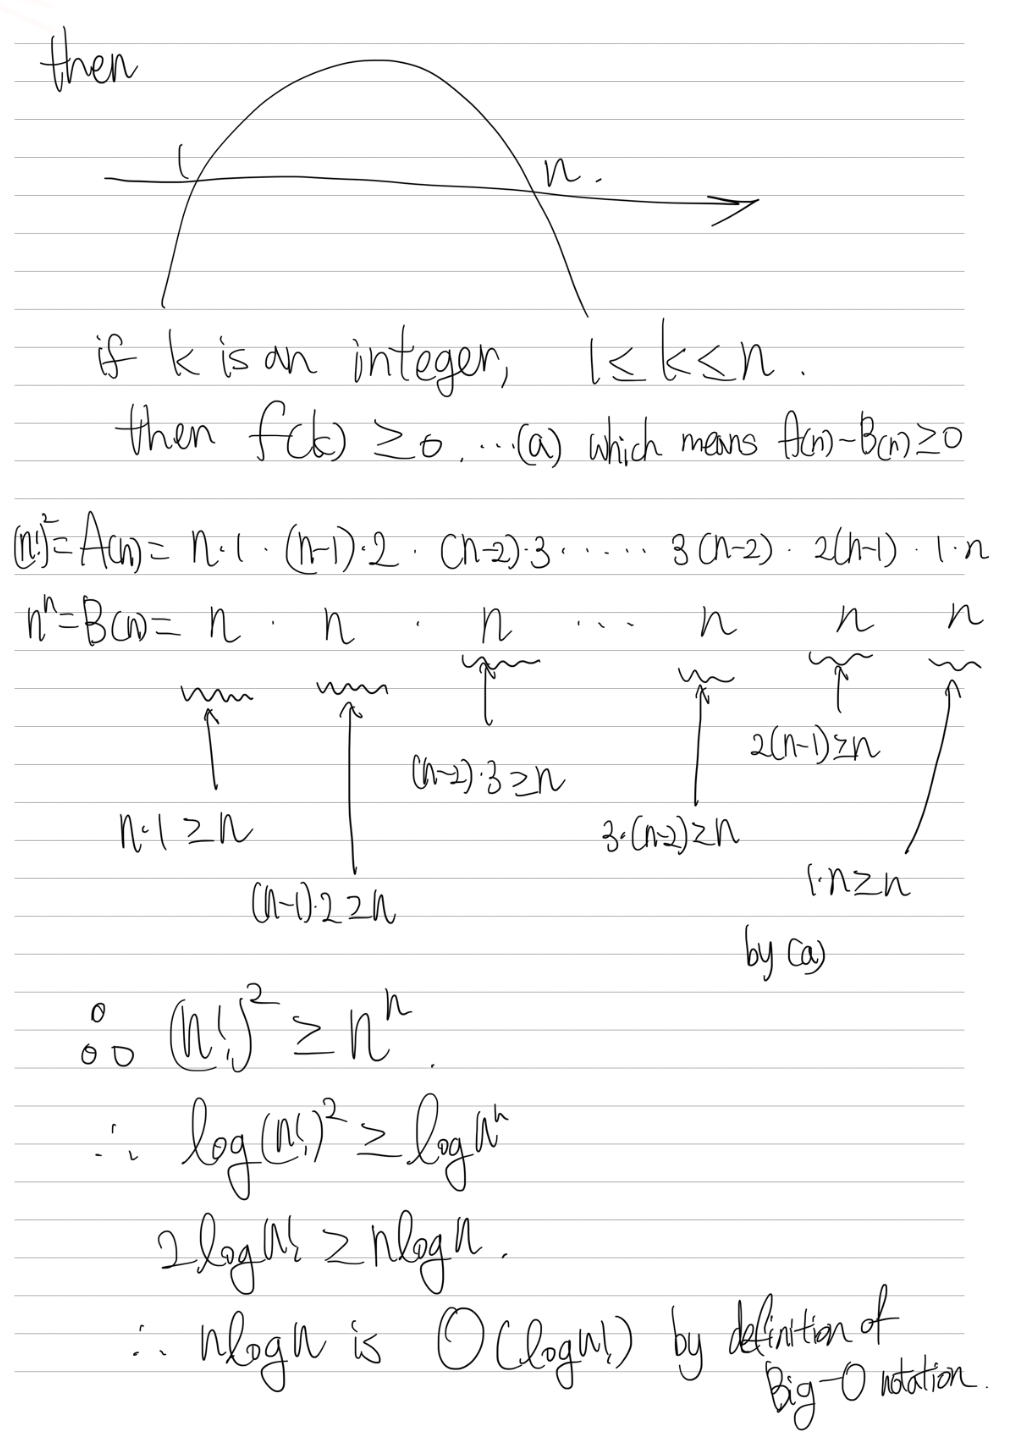 then
1 n.
if k is an integer, 1≤k≤n.
then f(k) ≥0. ...(a) which means A(n)-B(n)≥0
(n!)²=A(n)= n·1 · (n-1)·2 · (n-2)·3 ······ 3(n-2) · 2(n-1) · 1·n
nⁿ=B(n)= n · n · n ··· n n n
2(n-1)≥n
(n-2)·3≥n
n·1≥n 3·(n-2)≥n
1·n≥n
(n-1)·2≥n
by (a)
∴ (n!)² ≥ nⁿ.
∴ log(n!)² ≥ log nⁿ
2log n! ≥ nlog n.
∴ nlog n is O(log n!) by definition of
Big-O notation.